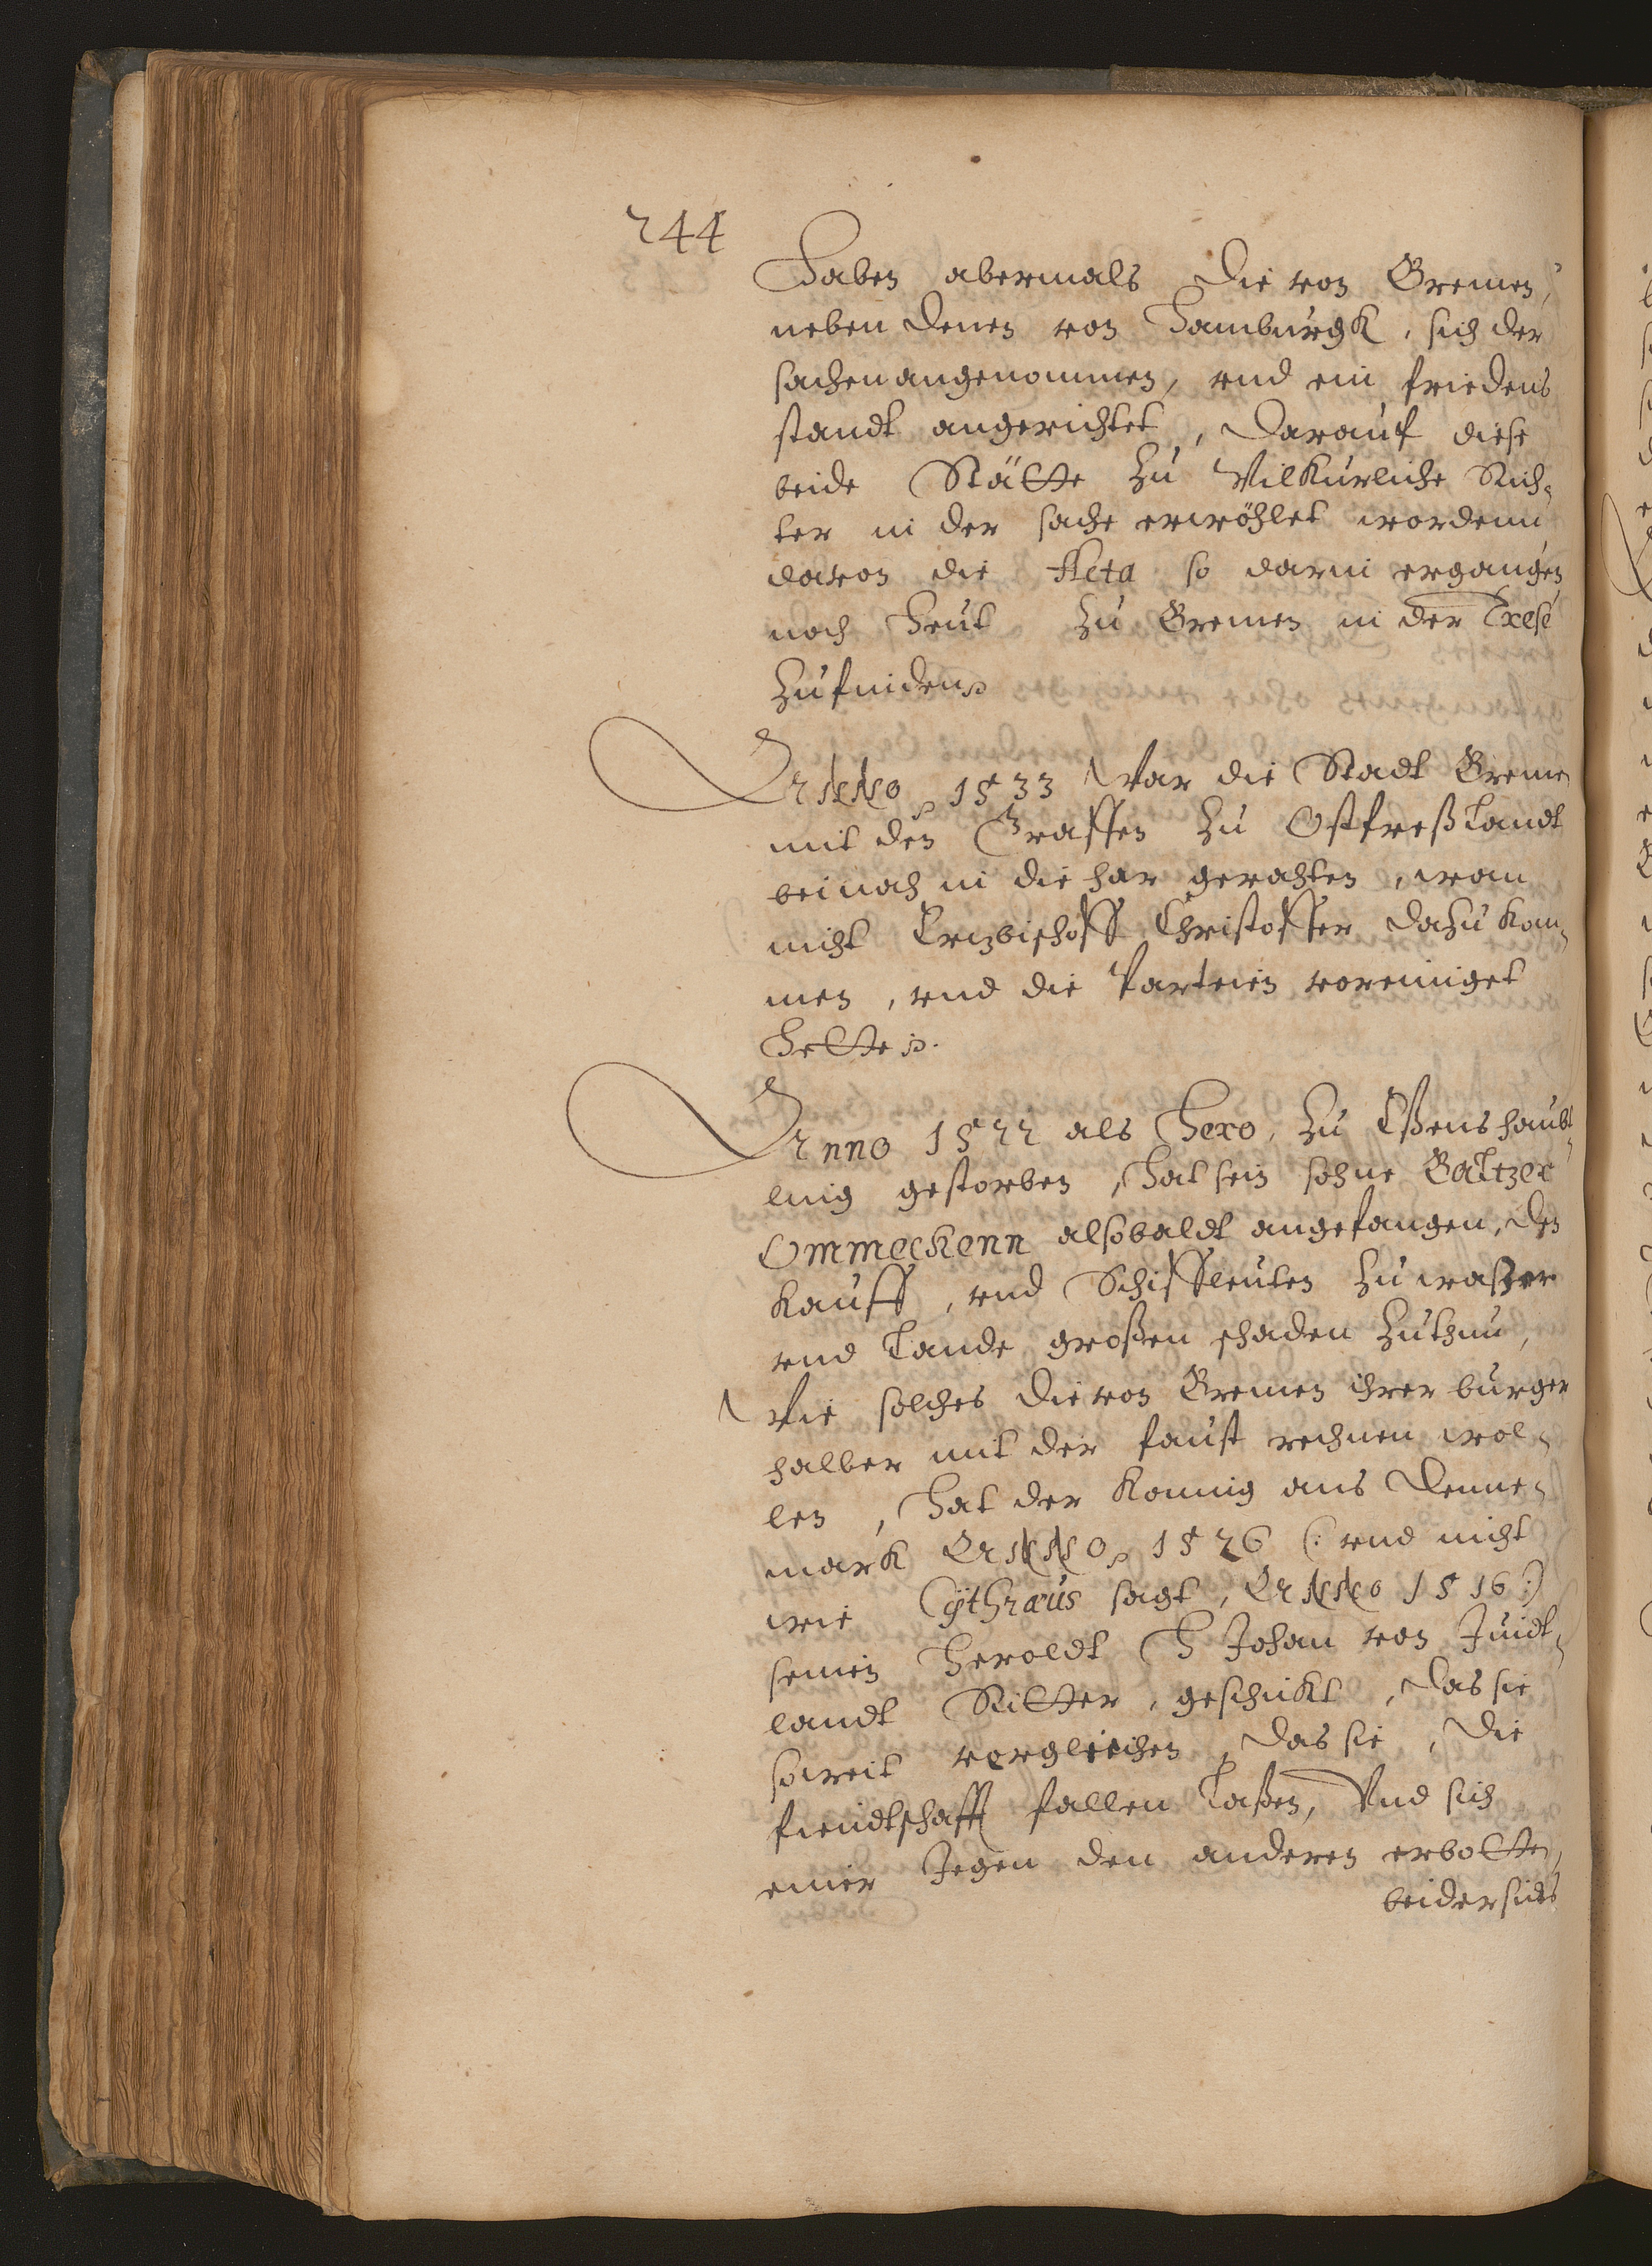 244
Haben abermals die von Bremen,
neben denen von Hamburgk, sich der
sachen angenommen, vnd ein friedens
standt angerichtet, Darauf diese
beide Stätte zu Wilkurliche Rich-
ter in der sache erwöhlet wordenn
davon die Acta so darin ergangen
noch heut zu Bremen in der Trese
zufinden
Anno 1533 War die Stadt Breme
mit den Graffen zu Ostfreßlandt
beinah in die har gerahten, wan
nicht Ertzbischoff Christoffer dazu kom-
men, vnd die Parteien voreiniget
hette.
Anno 1522 als Hero, zu Eßens haubt-
ling gestorben, hat sein sohne Baltzer
Ommeckenn alsobaldt angefangen, den
kauff, vnd Schiffleuten zu waßer
vnd Lande großen schaden zuthun,
Wie solches die von Bremen ihrer burger
halber mit der faust rechnen wol-
len, hat der Konnig aus Denne-
mark Anno 1526 (: vnd nicht
wie Cythraus sagt, Anno 1516 :)
seinen Heroldt H Johan von Juidt-
landt Ritter, geschickt, das sie
soweit vorgleichen, das sie, die
fiendtschafft fallen Laßen, Vnd sich
einer Jegen den anderen erbotten,
beidersides